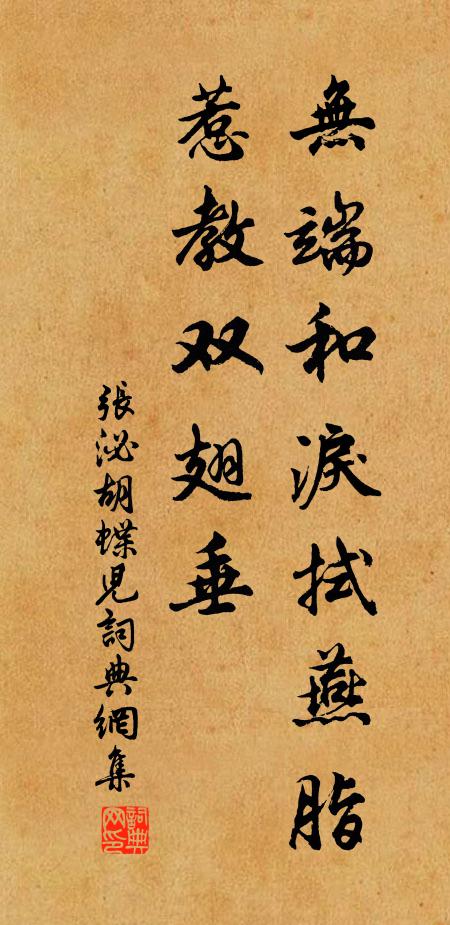 無端和淚拭燕脂
惹教双翅垂
張泌胡蝶児詞典網集
詞典网印